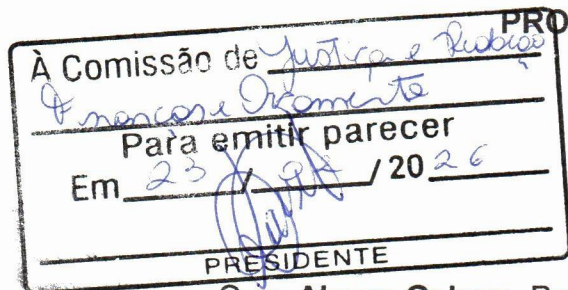 PRO
À Comissão de Justiça e Redação
Finanças e Orçamento
Para emitir parecer
Em 23 / 02 / 2026
PRESIDENTE